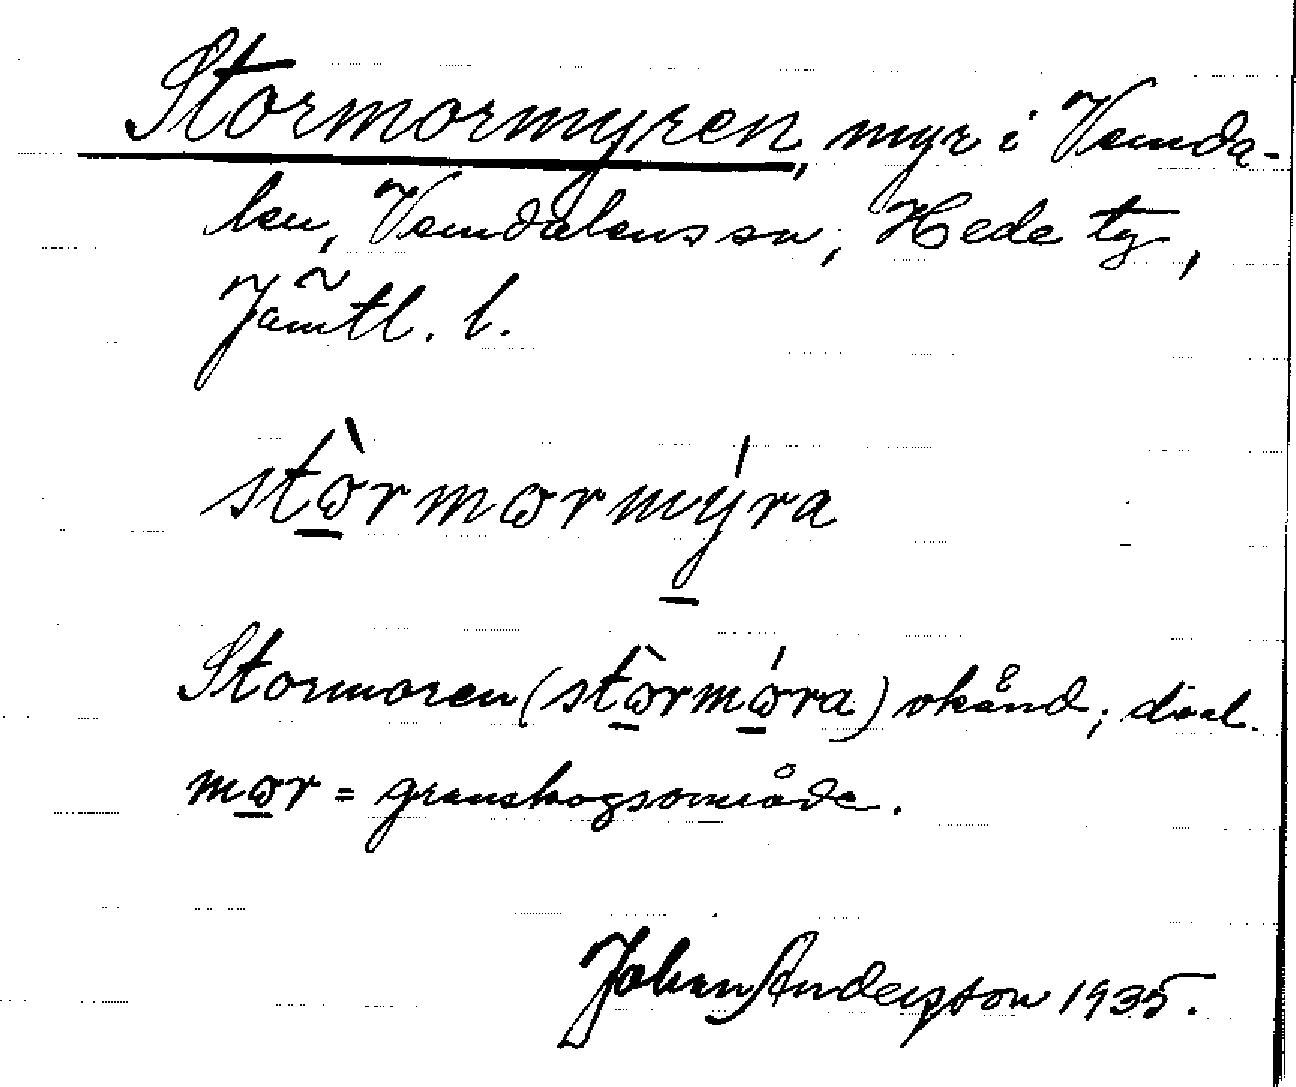 Stormormyren, myr i Vemda-
len, Vemdalens sn, Hede tg,
Jämtl. l.
stòrmormýra
Stormoren (stòrmóra) okänd; dial.
mor = granskogsområde.
Johan Andersson 1935.